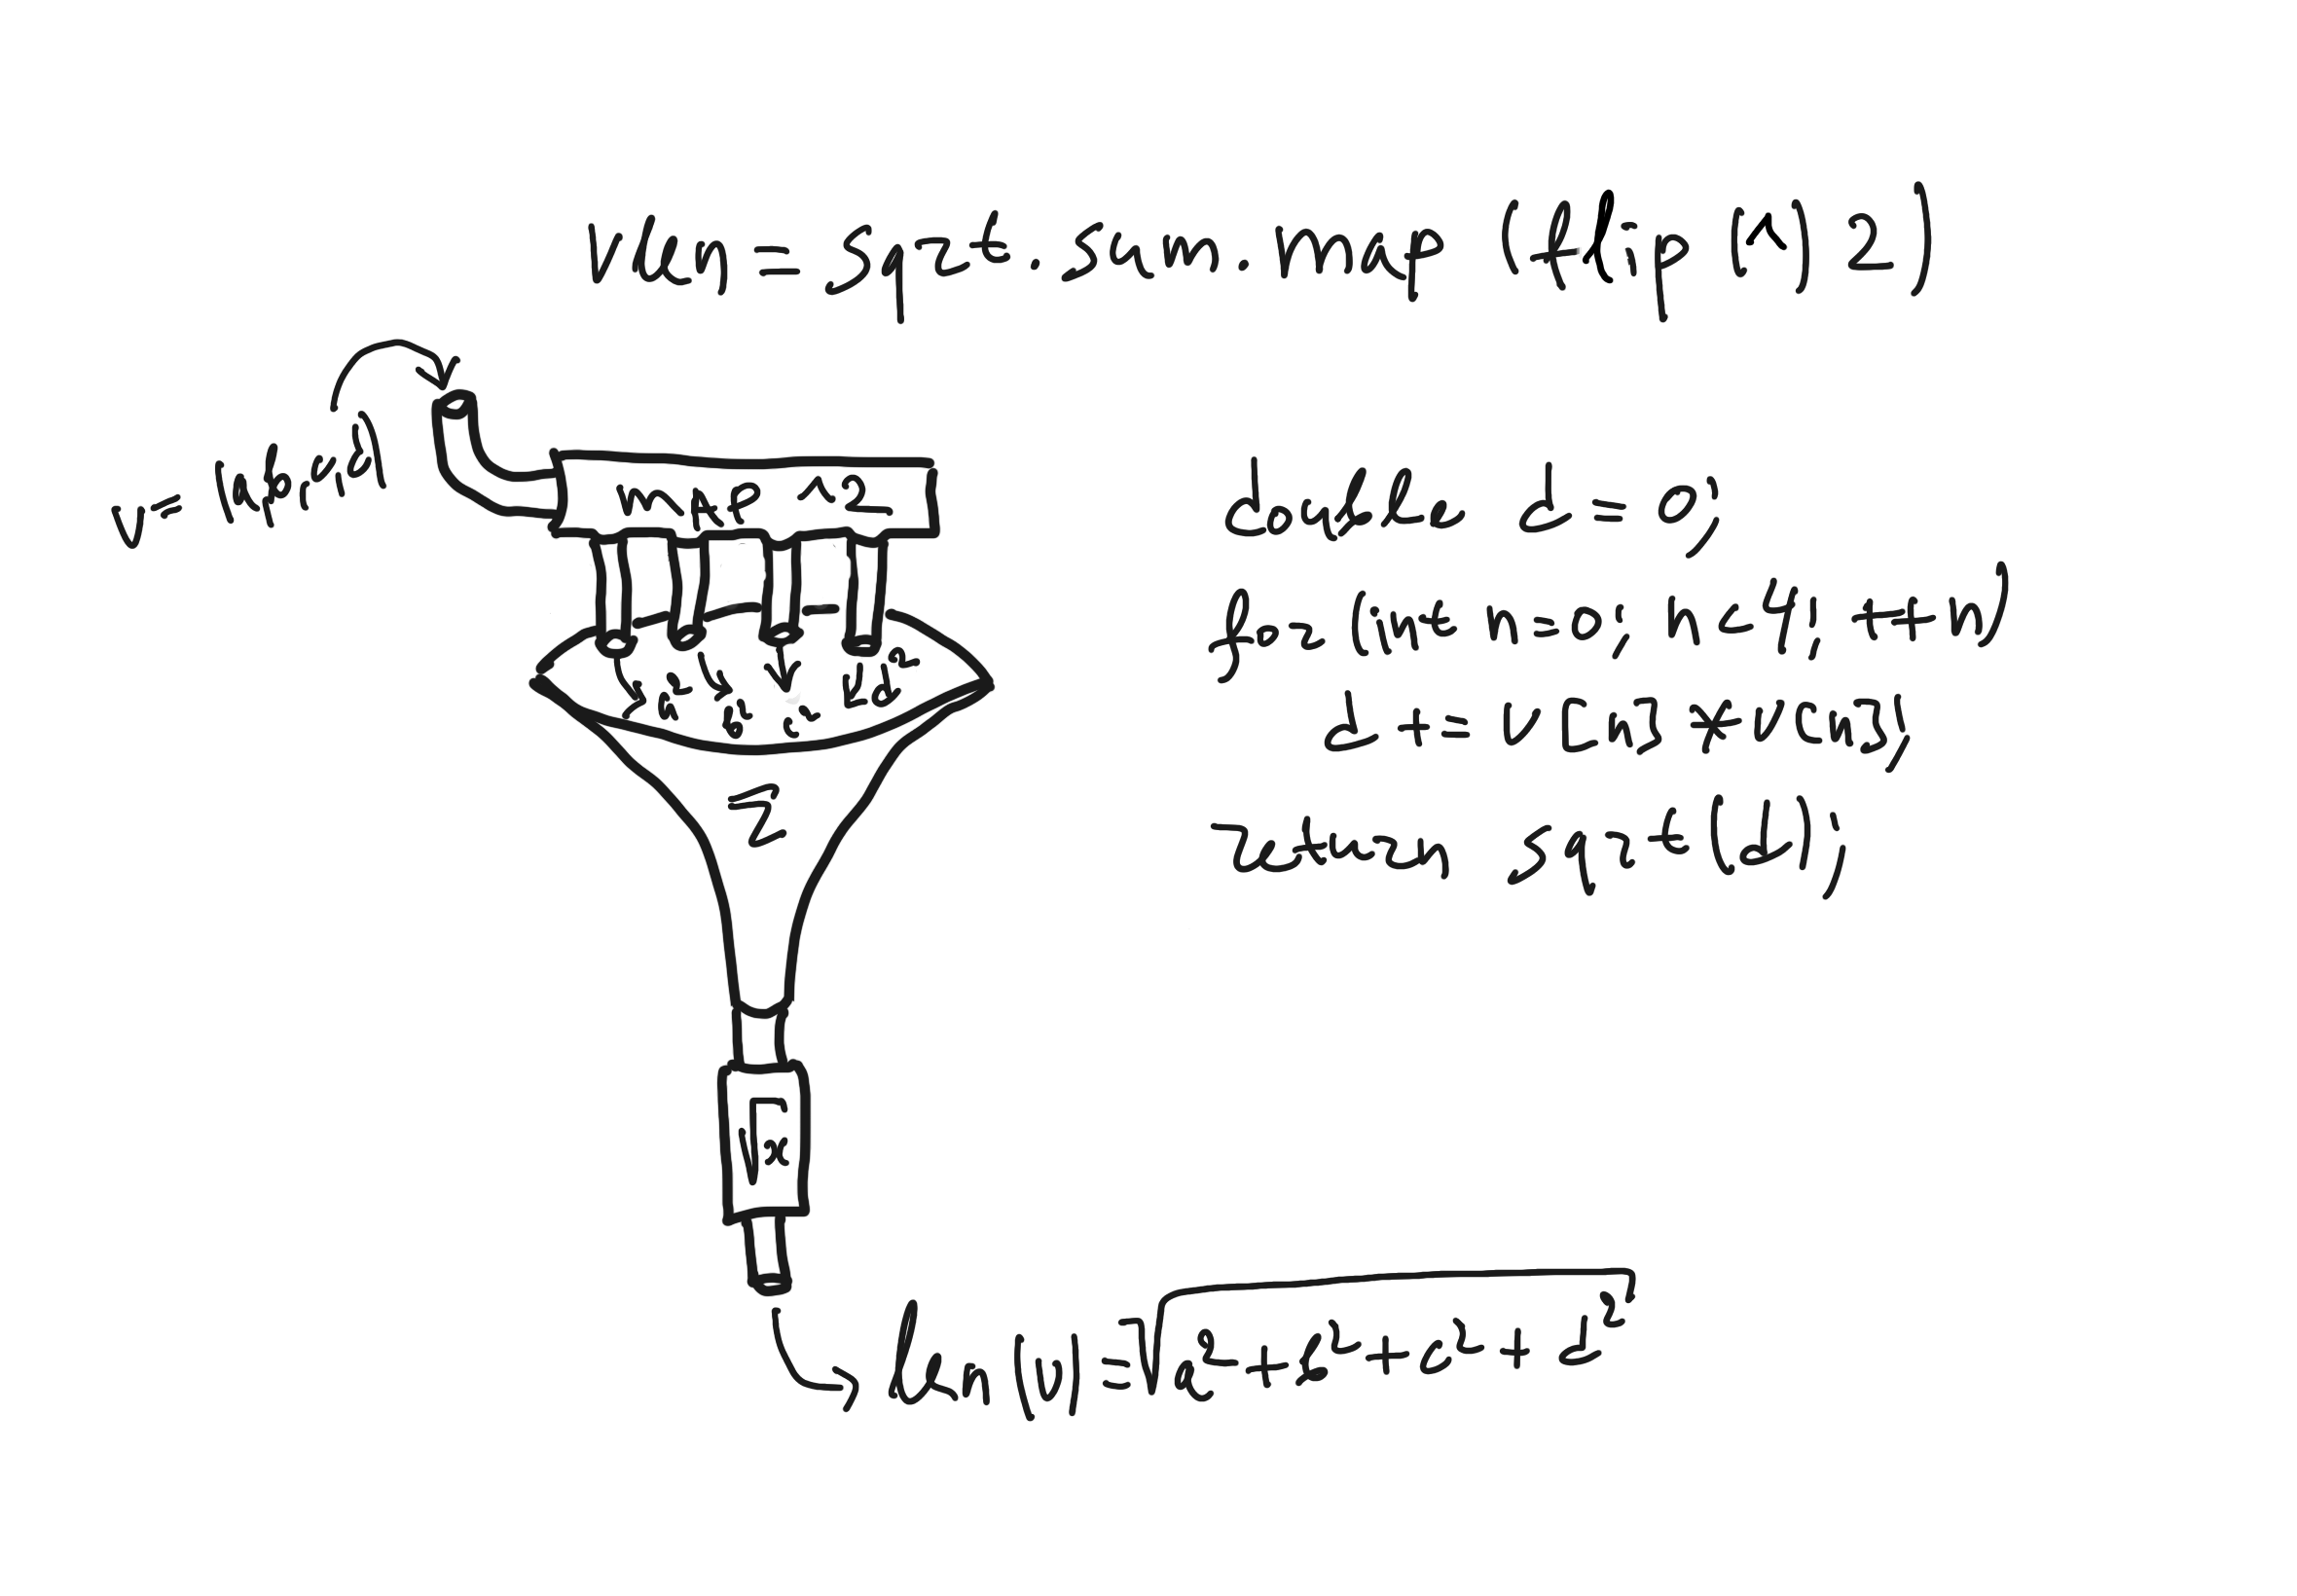 vlen = sqrt . sum . map (flip (^) 2)
v = (a,b,c,d)
MAP ^2
a² b² c² d²
Σ
√x
len(v) = √a² + b² + c² + d²
double d = 0;
for (int n=0; n<4; ++n)
d += v[n] * v[n];
return sqrt(d);